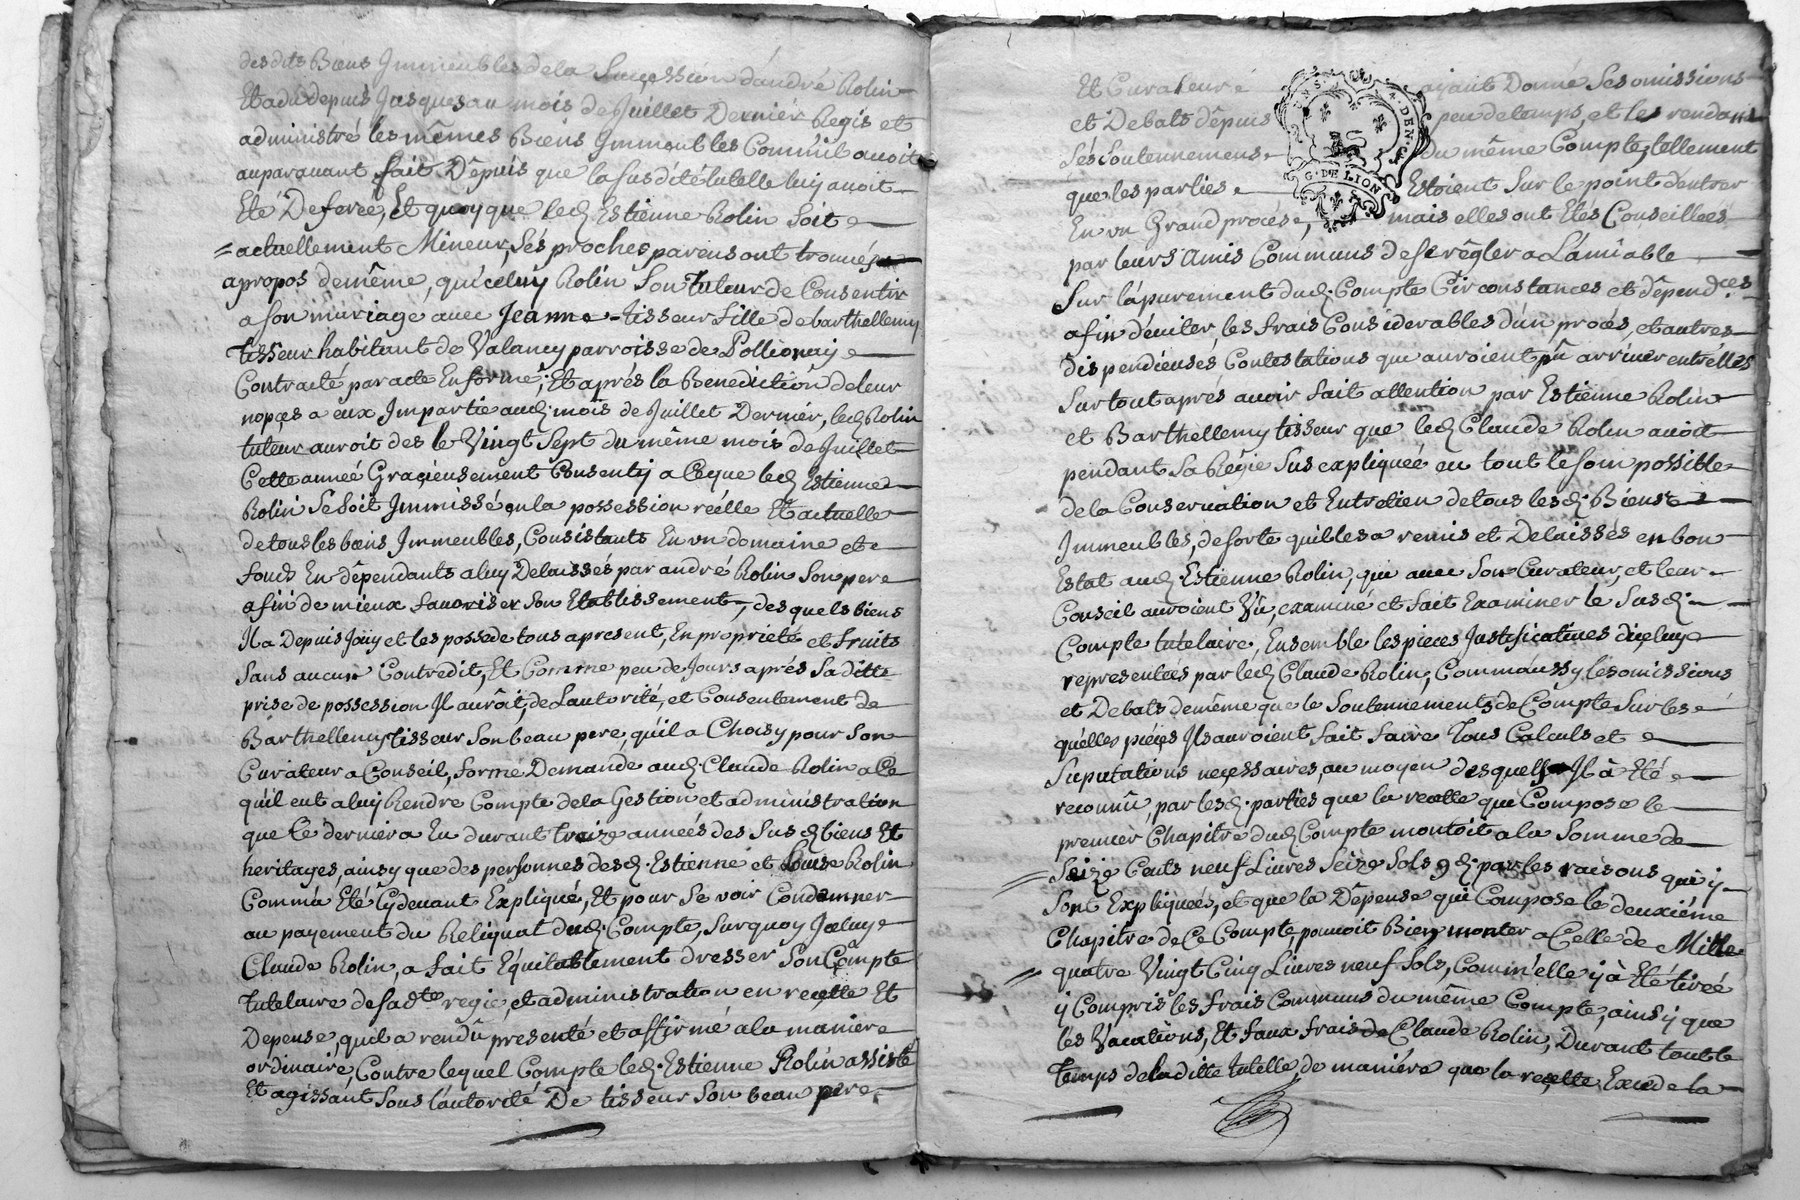 desdits Biens Jmmeubles de la Succession d'andré Rolin
Et adu depuis Jusques au mois de Juillet Dernier Regis et
administré les mêmes Biens Jmmeubles Comm'il auoit
auparauant fait Depuis que la susdite tutelle luy auoit
Eté Deferée, Et quoy que led. Estienne Rolin soit
actuellement Mineur, Sés proches parens ont trouués
apropos demême, qu'iceluy Rolin Son Tuteur de Consentir
a son mariage auec Jeanne tisseur fille de barthellemy
tisseur habitant de Valancy parroisse de Pollionay
Contracté par acte En forme; Et aprés la Benediction de leur
nopces a eux Jmpartie aud. mois de Juillet Dernier, led. Rolin
tuteur auroit des le Vingt Sept du même mois de Juillet
Cette année Gracieusement Consenty a Ceque led. Estienne
Rolin Se soit Jmmissé en la possession réelle Et actuelle
detous les biens Jmmeubles, Consistants En un domaine et
fonds En dépendants a luy Delaissés par andré Rolin Son pere
afin de mieux fauoriser Son Etablissement, des quels biens
Jl a Depuis Joüy et les possede tous apresent, En proprieté et fruits
Sans aucun Contredit, Et Comme peu de Jours aprés Saditte
prise de possession Jl auroit, de L'autorité, et Consentement de
Barthellemy Tisseur Son beau pere, qu'il a Choisy pour Son
Curateur a Conseil, formé Demande aud. Claude Rolin a Ce
qu'il eut a luy Rendre Compte de la Gestion et administration
que Ce dernier a Eu durant traize années des Susd. biens Et
heritages, ainsy que des personnes desd. Estienne et Louise Rolin
Comm'a Eté Cydeuant Expliqué, Et pour Se voir Condamner
au payement du Reliquat dud. Compte, Surquoy Jceluy
Claude Rolin, a fait Equitablement dresser Son Compte
tutelaire de Sadte regie, et administration en recette Et
Depense, qu'il a rendû presenté et affirmé a la maniere
ordinaire, Contre lequel Compte led. Estienne Rolin assisté
Et agissant Sous L'autorité De tisseur Son beau pere
Et Curateur ayant Donné Ses omissions
et Debats depuis peu de temps, et les rendans
Sés Soutennemens du même Compte, tellement
que les parties Estoient Sur le point d'entrer
En un Grand procés, mais elles ont Etés Conseillées
par leurs amis Communs de se régler a L'amiable
Sur l'apurement dud. Compte Circonstances et dépendces
afin d'éuiter, les frais Considerables d'un procés, et autres
Dispendieuses Contestations que auroient pû arriuer entrélles
Sur tout aprés auoir fait attention par Estienne Rolin
et Barthellemy tisseur que led. Claude Rolin auoit
pendant Sa Régie Sus expliquée eu tout le soin possible
de la Conseruation et Entretien de tous lesd. Biens
Jmmeubles, de sorte qu'il les a remis et Delaissés en bon
Estat aud. Estienne Rolin, qui auec Son Curateur, et leur
Conseil auroient Vû, examiné et fait Examiner le Susd.
Compte tutelaire, Ensemble les pieces Justificatiues diceluy
representées par led. Claude Rolin, Comm'aussy les omissions
et Debats demême que le Soutennements de Compte Sur les
quelles pieces Jls auroient fait faire Tous Calculs et
Suputations necessaires, au moyen des quels Jl à Eté
reconnû, par lesd. parties que la recette qui Compose le
premier Chapitre dud. Compte montoit a la Somme de
Seize Cents neuf Liures Seize Sols 9 d. par les raisons qui y
Sont Expliquées, et que la Dépense qui Compose le deuxiéme
Chapitre de Ce Compte, pouuoit Bien monter a Celle de Mille
quatre Vingt Cinq Liures neuf Sols, Comm'elle y à Eté tirée
y Compris les frais Communs du même Compte, ainsy que
les Vacations, Et faux frais de Claude Rolin, Durant tout le
Temps de laditte tutelle, de maniére que la recette Excede la
4 · DEN ·
G · DE LION